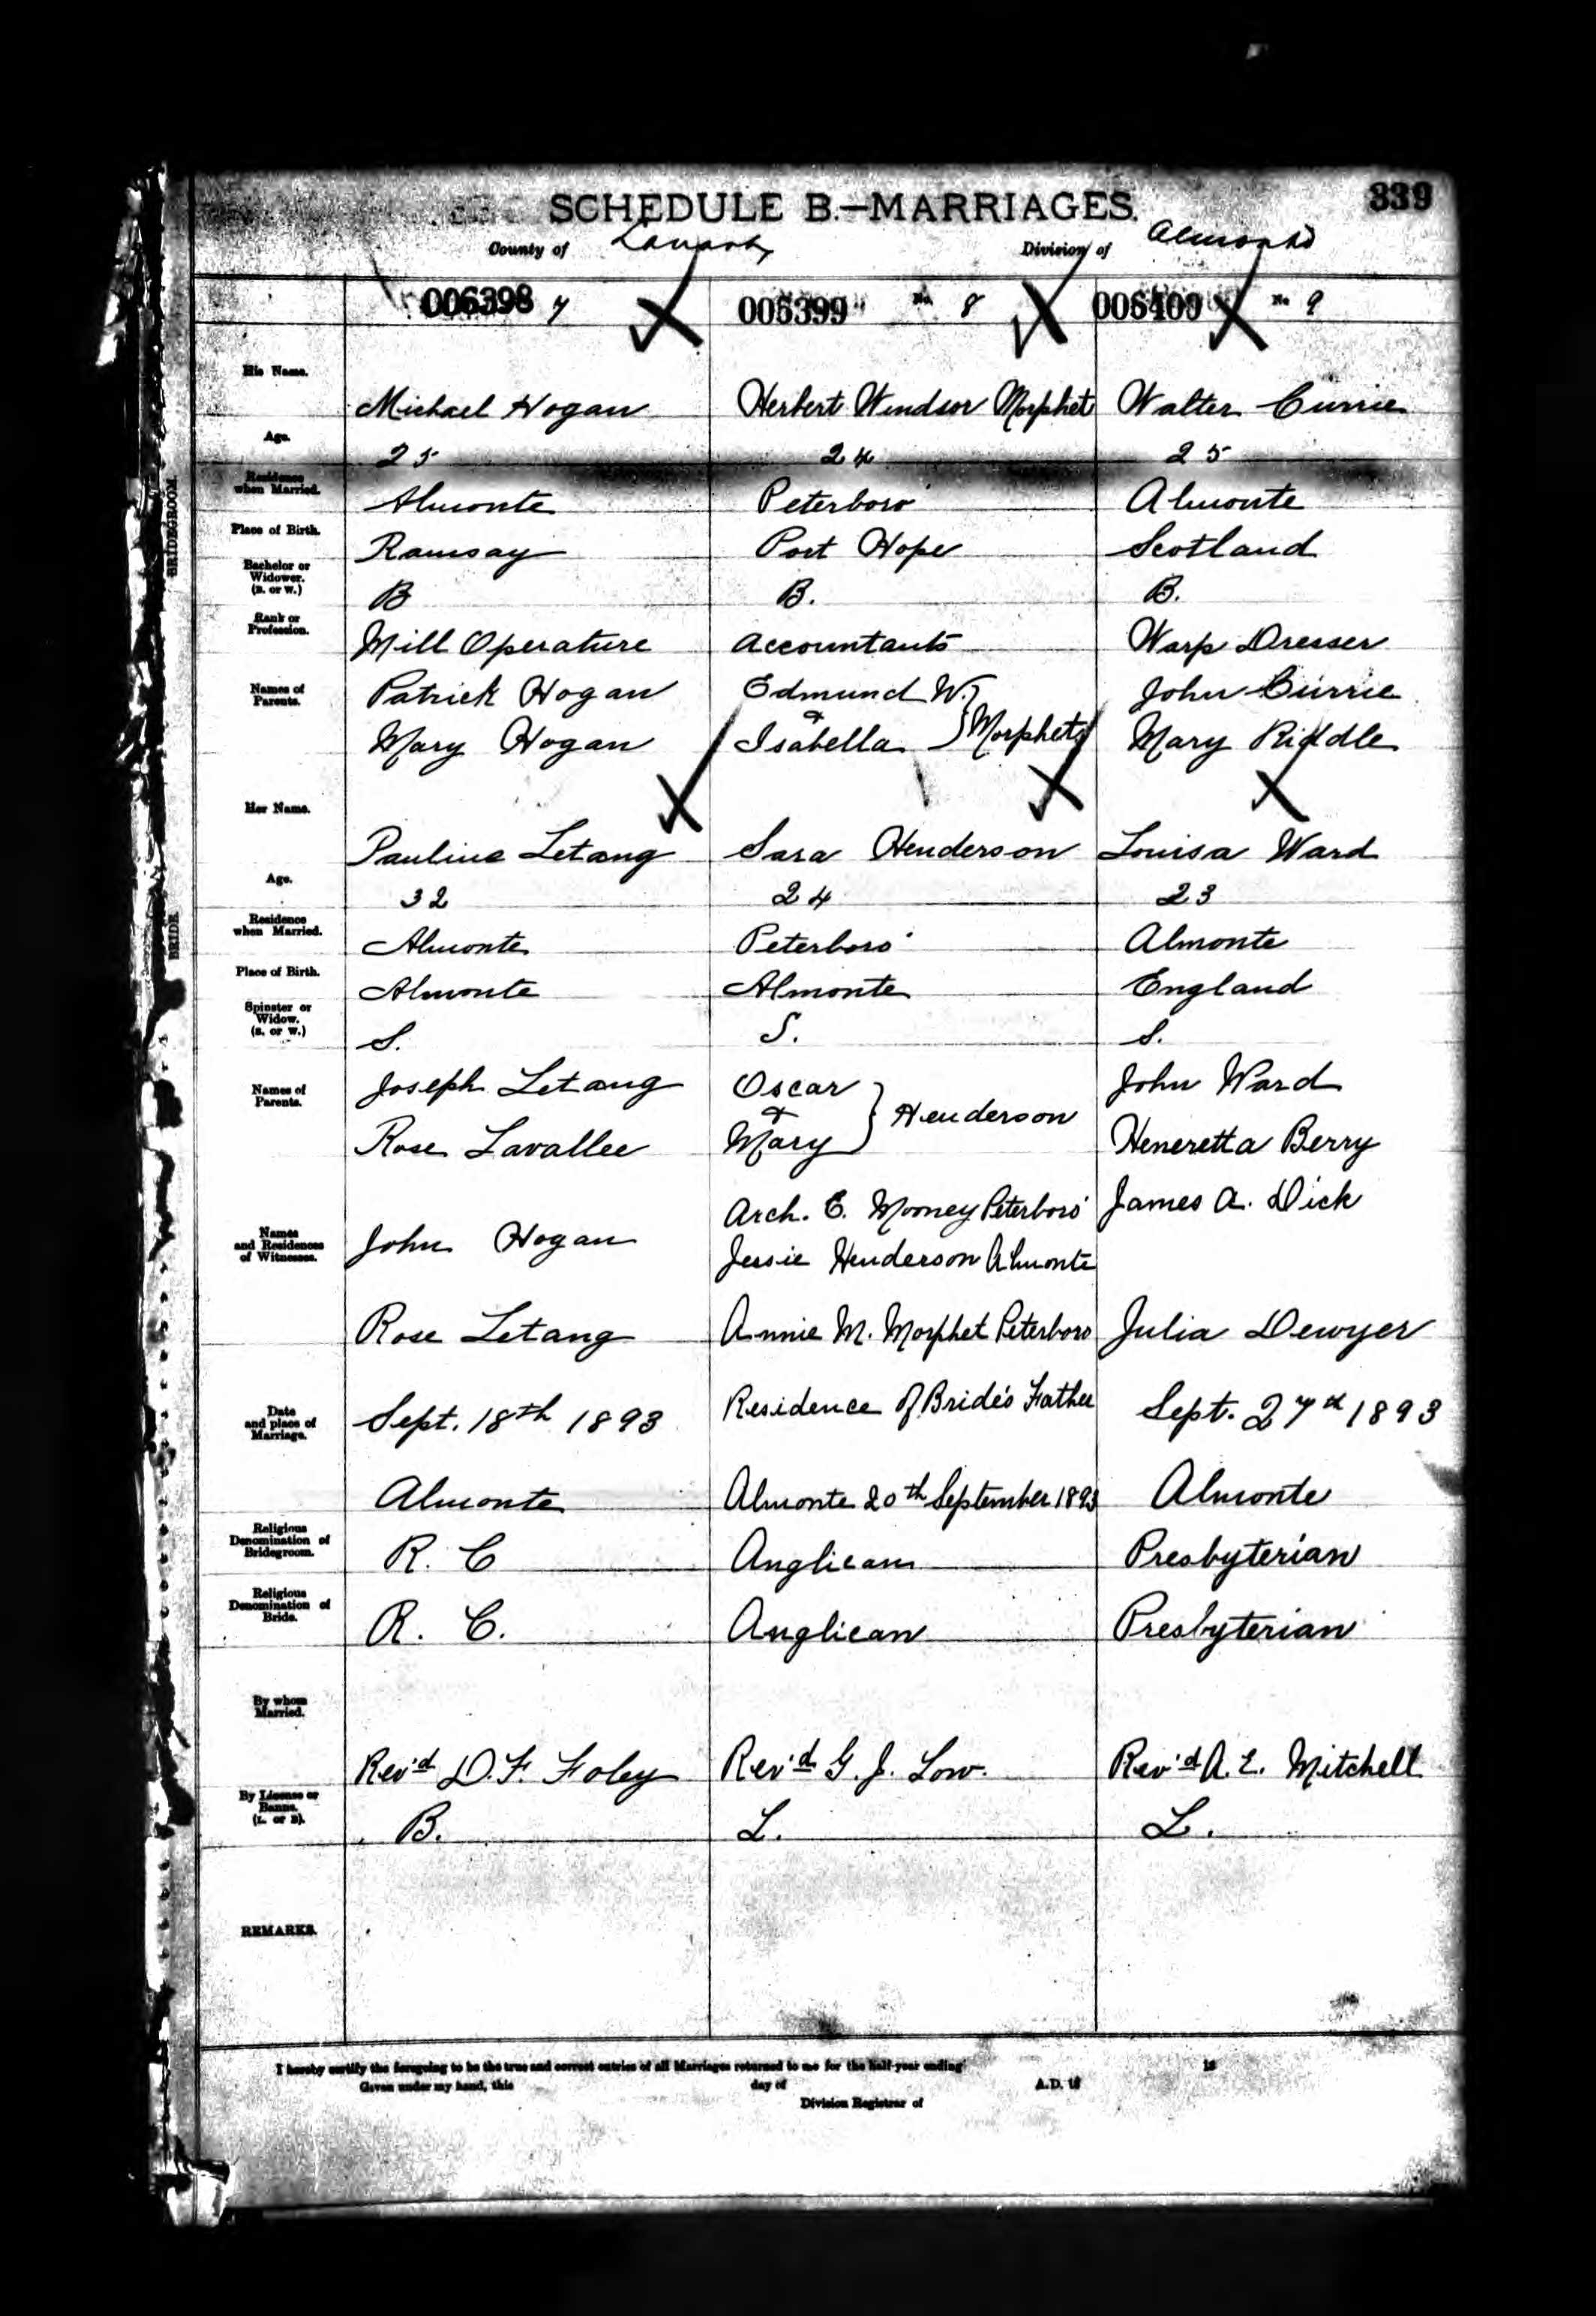 339
SCHEDULE B.—MARRIAGES.
County of Lanark Division of Almonte
006398 7
006399 No. 8
006400 No. 9
BRIDEGROOM.
His Name.
Michael Hogan
Herbert Windsor Morphet
Walter Currie
Age.
25
24
25
Residence when Married.
Almonte
Peterboro'
Almonte
Place of Birth.
Ramsay
Port Hope
Scotland
Bachelor or Widower. (B. or W.)
B
B.
B.
Rank or Profession.
Mill Operature
Accountant
Warp Dresser
Names of Parents.
Patrick Hogan
Mary Hogan
Edmund W.
&
Isabella } Morphet
John Currie
Mary Riddle
BRIDE.
Her Name.
Pauline Letang
Sara Henderson
Louisa Ward
Age.
32
24
23
Residence when Married.
Almonte
Peterboro'
Almonte
Place of Birth.
Almonte
Almonte
England
Spinster or Widow. (S. or W.)
S.
S.
S.
Names of Parents.
Joseph Letang
Rose Lavallee
Oscar
&
Mary } Henderson
John Ward
Heneretta Berry
Names and Residences of Witnesses.
John Hogan
Rose Letang
Arch. E. Mooney Peterboro'
Jessie Henderson Almonte
Annie M. Morphet Peterboro
James A. Dick
Julia Dewyer
Date and place of Marriage.
Sept. 18th 1893
Almonte
Residence of Bride's Father
Almonte 20th September 1893
Sept. 27th 1893
Almonte
Religious Denomination of Bridegroom.
R. C
Anglican
Presbyterian
Religious Denomination of Bride.
R. C.
Anglican
Presbyterian
By whom Married.
Rev'd D. F. Foley
Rev'd G. J. Low.
Rev'd A. E. Mitchell
By License or Banns. (L. or B).
B.
L.
L.
REMARKS.
I hereby certify the foregoing to be the true and correct entries of all Marriages returned to me for the half-year ending 18
Given under my hand, this day of A.D. 18
Division Registrar of